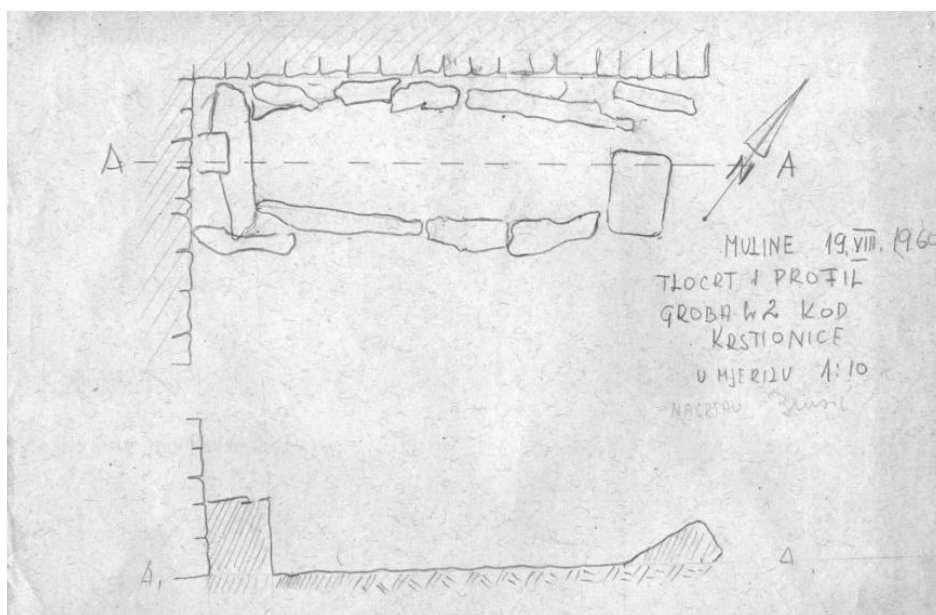 A
N A
MULINE 19. VIII. 1960
TLOCRT I PROFIL
GROBA br 2 KOD
KRSTIONICE
U MJERILU 1:10
NACRTAO
A,
A